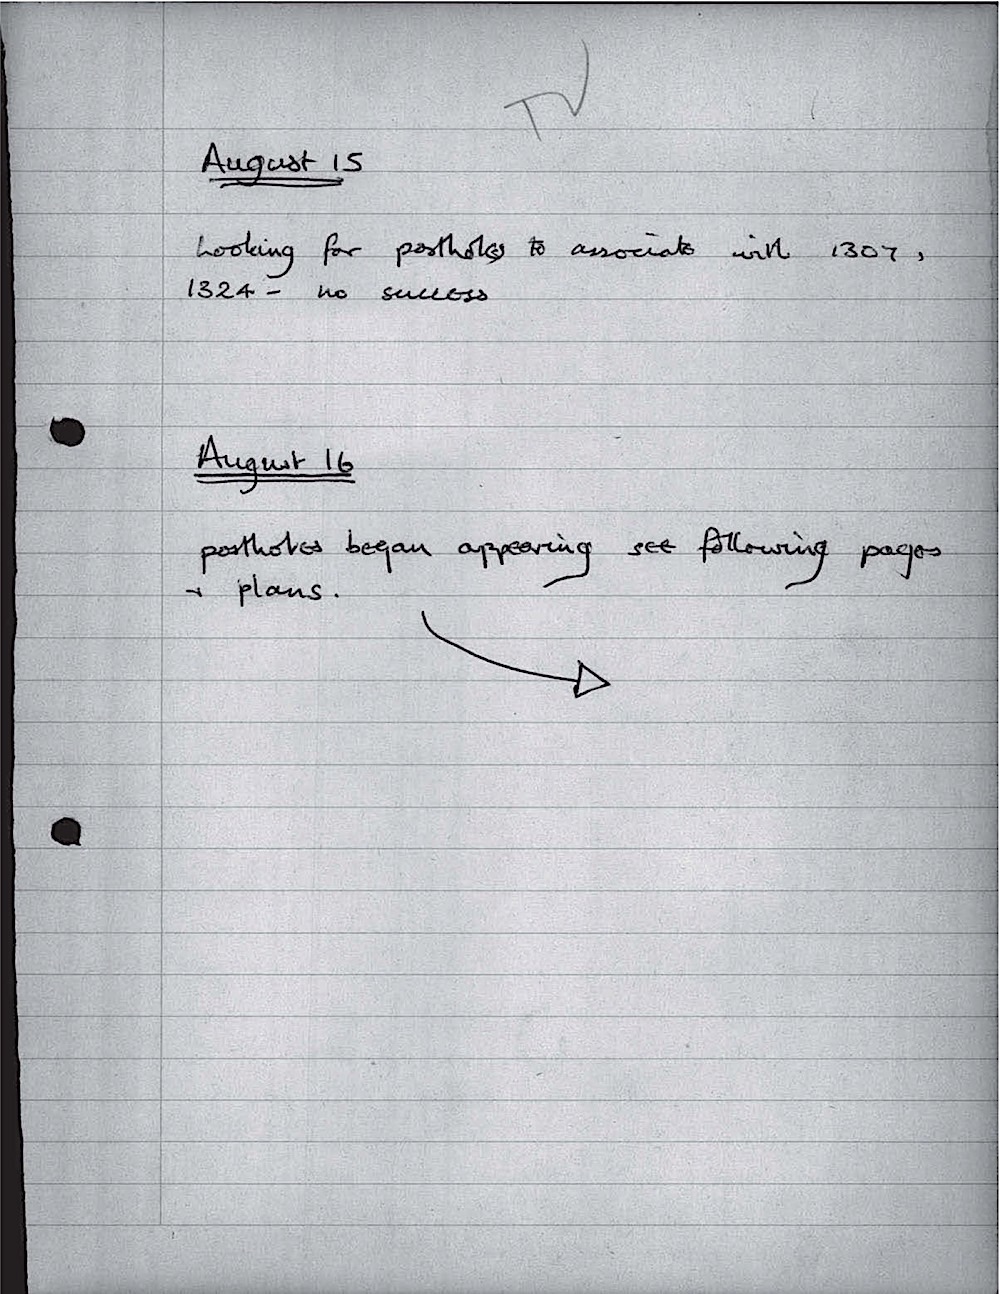 TV
August 15
Looking for postholes to associate with 1307,
1324 - no success
August 16
postholes began appearing see following pages
+ plans.